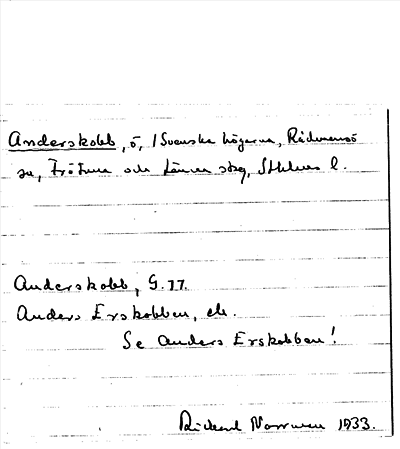 Anderskobb, ö, i Svenska högarna, Rådmansö
sn, Frötuna och Länna skg, Sthlms l.
Anderskobb, G. 77.
Anders Erskobben, ek.
Se Anders Erskobben!
Rickard Norrman 1933.